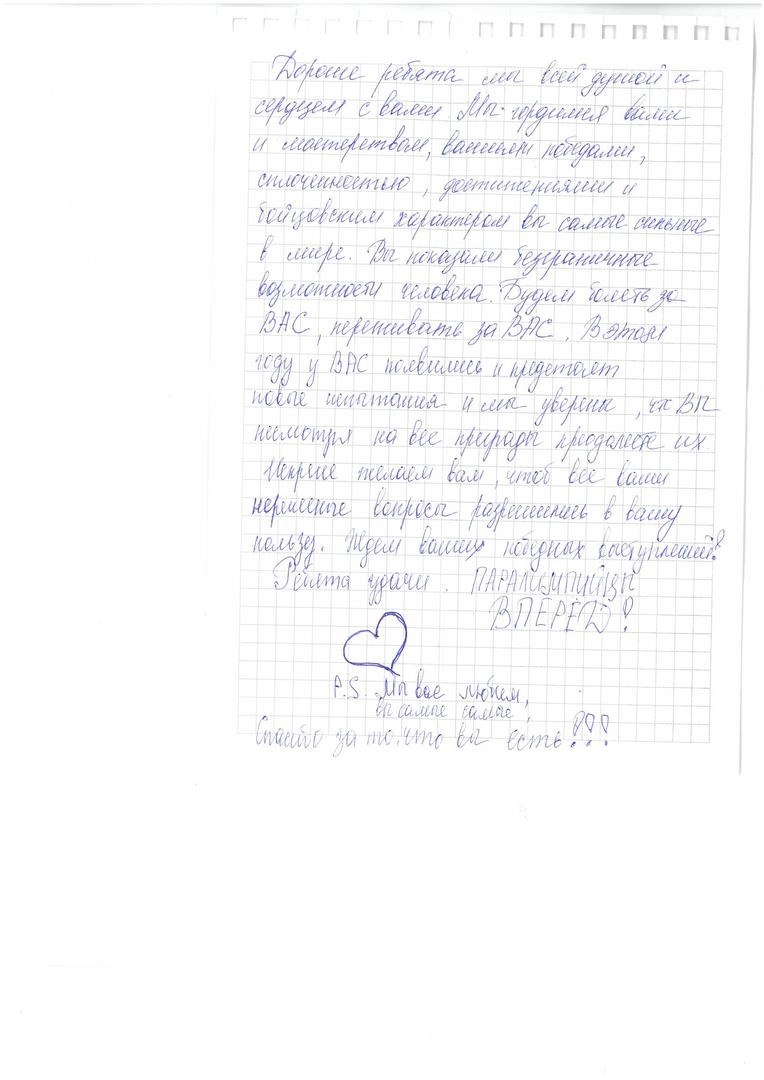 Дорогие ребята мы всей душой и
сердцем с вами. Мы гордимся вами
и мастерством, вашими победами,
сплоченностью, достижениями и
бойцовским характером вы самые сильные
в мире. Вы показали безграничные
возможности человека. Будем болеть за
ВАС, переживать за ВАС. В этом
году у ВАС появились и предстоят
новые испытания и мы уверены, что ВЫ
несмотря на все преграды преодолеете их.
Искрене желаем вам, чтоб все ваши
нерешеные вопросы разрешились в вашу
пользу. Ждем ваших победных выступлений!
Ребята удачи. ПАРАЛИМПИЙЦЫ
ВПЕРЁД!
P.S. Мы вас любим,
вы самые самые,
Спасибо за то, что вы есть!!!